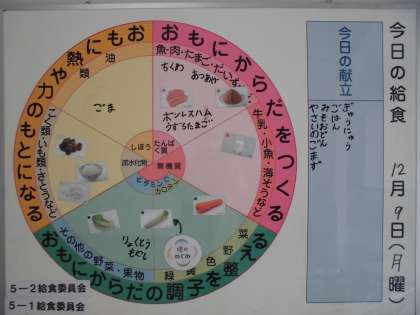 今日の給食
12月9日(月曜)
今日の献立
ぎゅうにゅう
ごはん
みそおでん
やさいのごまず
おもにからだをつくる
魚・肉・たまご・だいず
ちくわ
あつあげ
ボンレスハム
うずらたまご
牛乳・小魚・海そうなど
おもに熱や力のもとになる
油類
ごま
こく類・いも類・さとうなど
しぼう
たんぱく質
炭水化物
無機質
ビタミンC
カロチン
おもにからだの調子を整える
緑黄色野菜
その他の野菜・果物
りょくとう
もやし
5-2給食委員会
5-1給食委員会